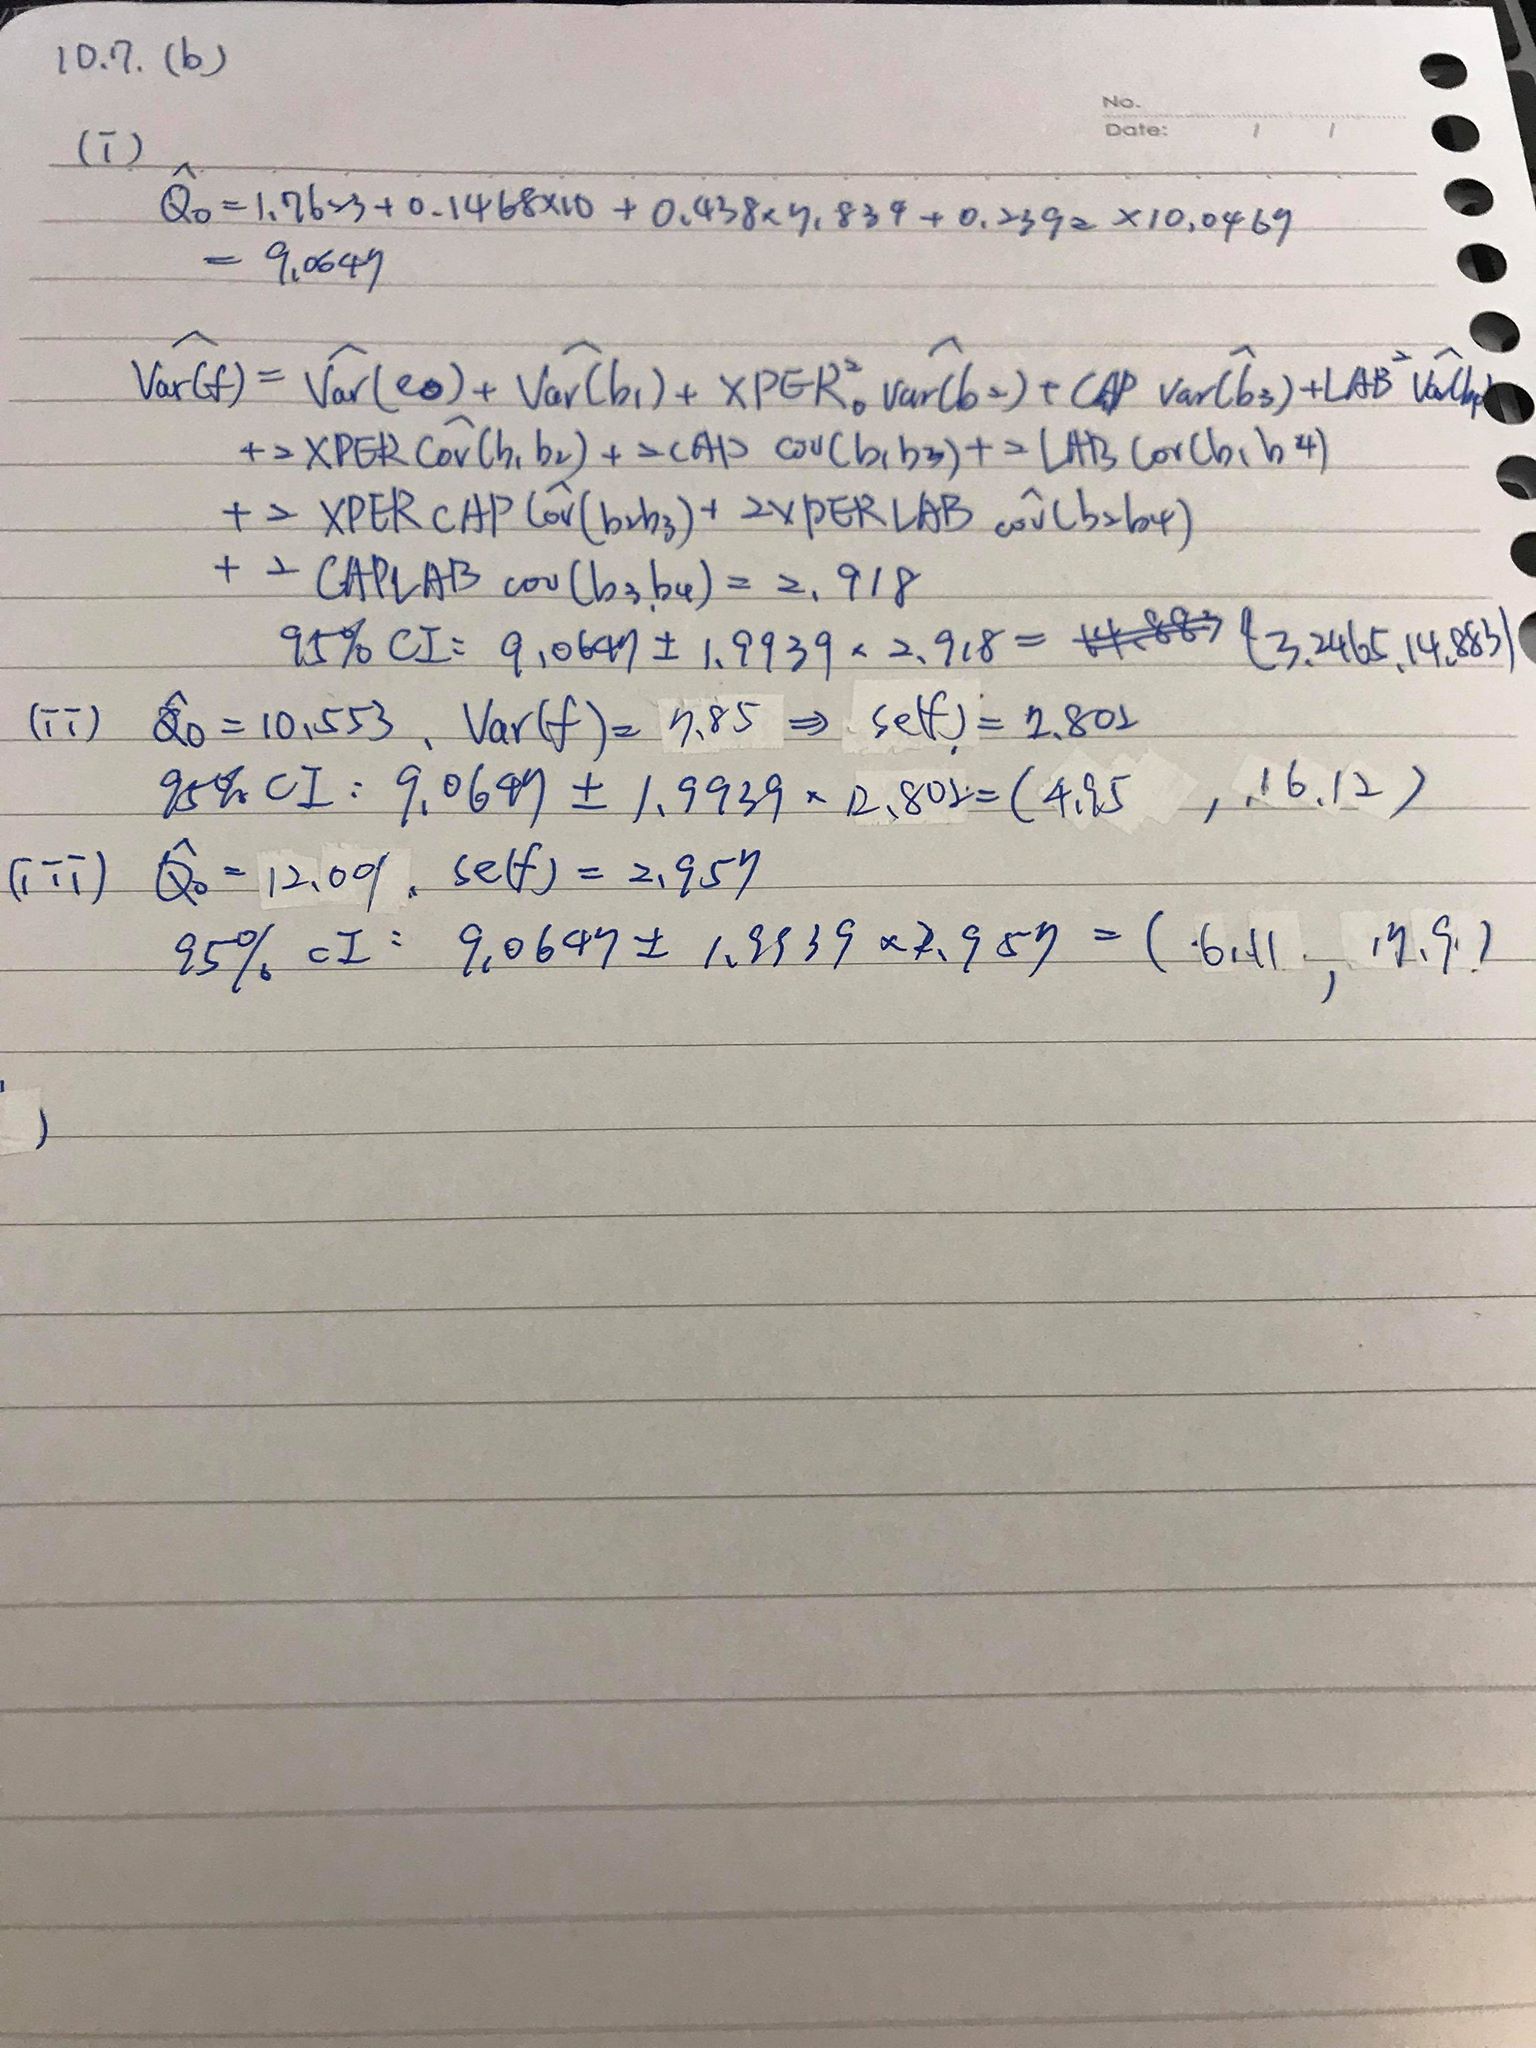 10.7. (b)
No.
Date: / /
(i)
Q̂0 = 1.7623 + 0.1468×10 + 0.438×7.834 + 0.2392 ×10.0467
= 9.0647
Var̂(f) = Var̂(e0) + Var̂(b1) + XPER0² Var̂(b2) + CAP Var̂(b3) + LAB² Var̂(b4)
+2 XPER Cov̂(b1 b2) + 2 CAP cov(b1 b3) + 2 LAB Cov(b1 b4)
+2 XPER CAP Cov̂(b2b3) + 2XPER LAB cov̂(b2b4)
+2 CAPLAB cov(b3,b4) = 2.918
95% CI: 9.0647 ± 1.9939 × 2.918 = (3.2465, 14.883)
(ii) Q̂0 = 10.553, Var(f) = 7.85 ⇒ se(f) = 2.802
95% CI: 9.0647 ± 1.9939 × 2.802 = (4.95 , 16.12)
(iii) Q̂0 = 12.001, se(f) = 2.957
95% CI: 9.0647 ± 1.9939 × 2.957 = (6.11 , 17.9)
)